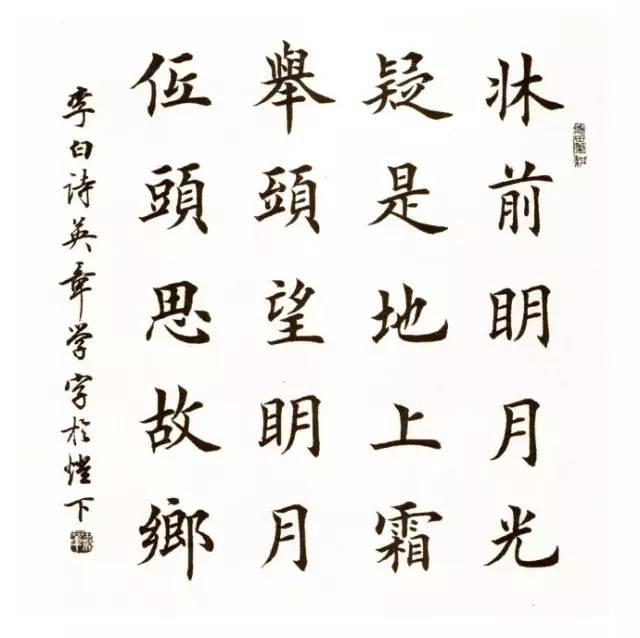 牀前眀月光
疑是地上霜
舉頭望眀月
低頭思故鄉
李白詩英章学字於燈下